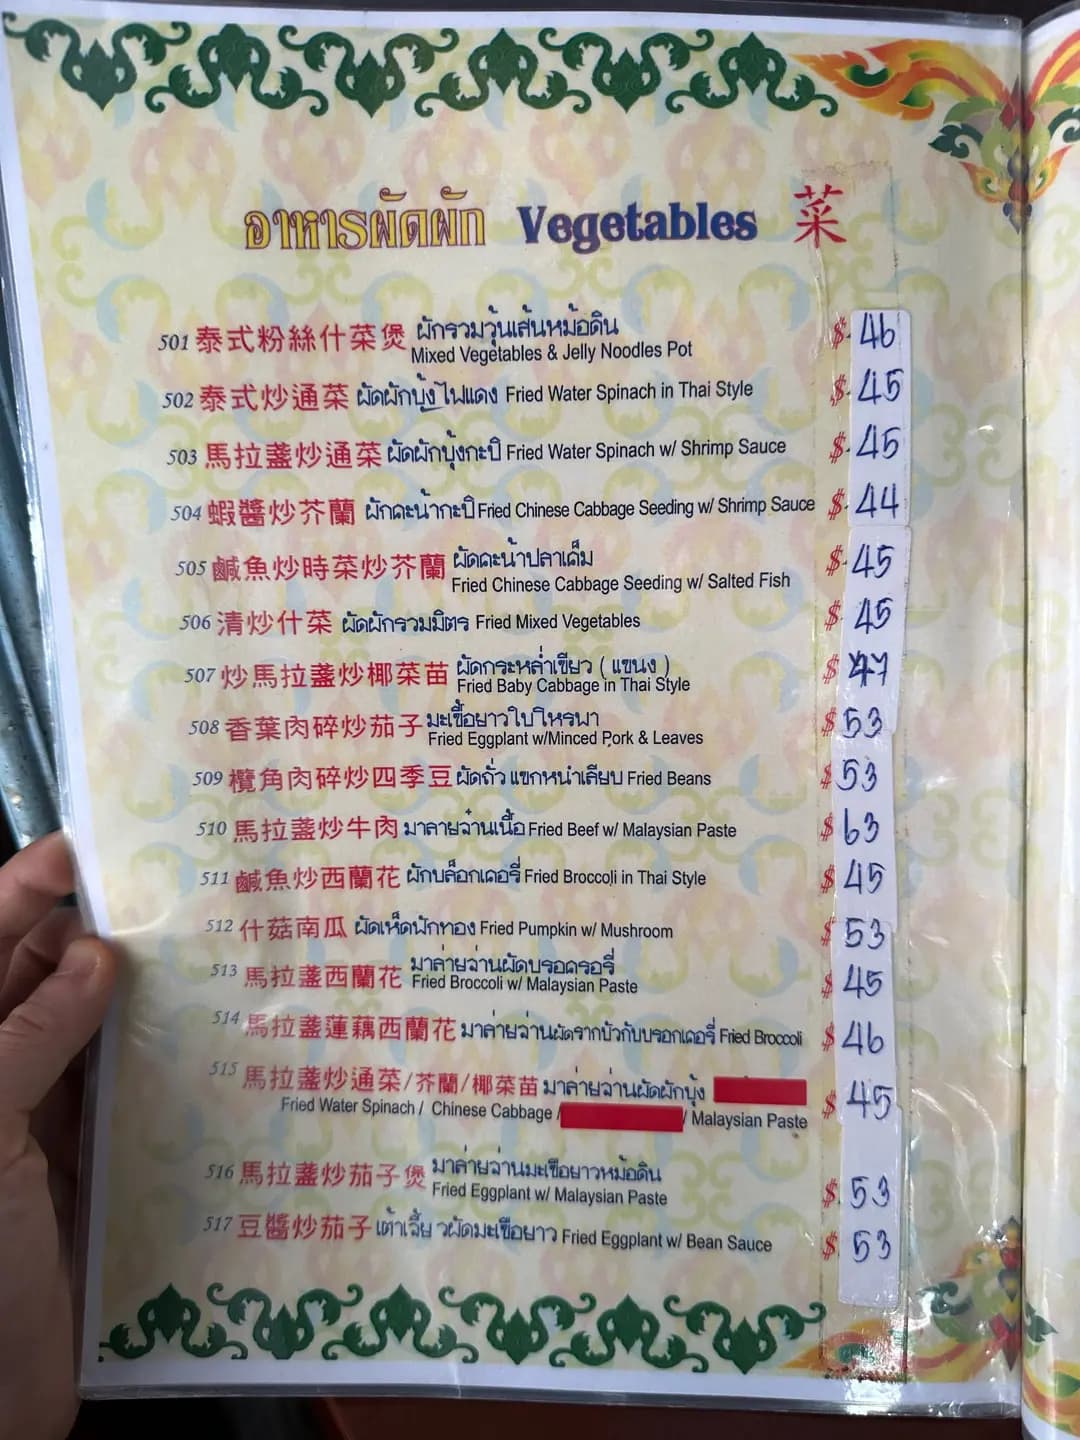 อาหารผัดผัก Vegetables 菜
501 泰式粉絲什菜煲 ผักรวมวุ้นเส้นหม้อดิน $ 46
Mixed Vegetables & Jelly Noodles Pot
502 泰式炒通菜 ผัดผักบุ้งไฟแดง Fried Water Spinach in Thai Style $ 45
503 馬拉盞炒通菜 ผัดผักบุ้งกะปิ Fried Water Spinach w/ Shrimp Sauce $ 45
504 蝦醬炒芥蘭 ผักคะน้ากะปิ Fried Chinese Cabbage Seeding w/ Shrimp Sauce $ 44
505 鹹魚炒時菜炒芥蘭 ผัดคะน้าปลาเค็ม $ 45
Fried Chinese Cabbage Seeding w/ Salted Fish
506 清炒什菜 ผัดผักรวมมิตร Fried Mixed Vegetables $ 45
507 炒馬拉盞炒椰菜苗 ผัดกระหล่ำเขียว ( แขนง ) $ 47
Fried Baby Cabbage in Thai Style
508 香葉肉碎炒茄子 มะเขื้อยาวใบโหรพา $ 53
Fried Eggplant w/Minced Pork & Leaves
509 欖角肉碎炒四季豆 ผัดถั่วแขกหนำเลียบ Fried Beans $ 53
510 馬拉盞炒牛肉 มาลายจ๋านเนื้อ Fried Beef w/ Malaysian Paste $ 63
511 鹹魚炒西蘭花 ผักบล็อกเคอรี่ Fried Broccoli in Thai Style $ 45
512 什菇南瓜 ผัดเห็ดฟักทอง Fried Pumpkin w/ Mushroom $ 53
513 馬拉盞西蘭花 มาล่ายจ่านผัดบรอครอรี่ $ 45
Fried Broccoli w/ Malaysian Paste
514 馬拉盞蓮藕西蘭花 มาล่ายจ่านผัดรากบัวกับบรอกเคอรี่ Fried Broccoli $ 46
515 馬拉盞炒通菜/芥蘭/椰菜苗 มาล่ายจ่านผัดผักบุ้ง $ 45
Fried Water Spinach / Chinese Cabbage / / Malaysian Paste
516 馬拉盞炒茄子煲 มาล่ายจ่านมะเขือยาวหม้อดิน $ 53
Fried Eggplant w/ Malaysian Paste
517 豆醬炒茄子 เต้าเจี้ยวผัดมะเขือยาว Fried Eggplant w/ Bean Sauce $ 53